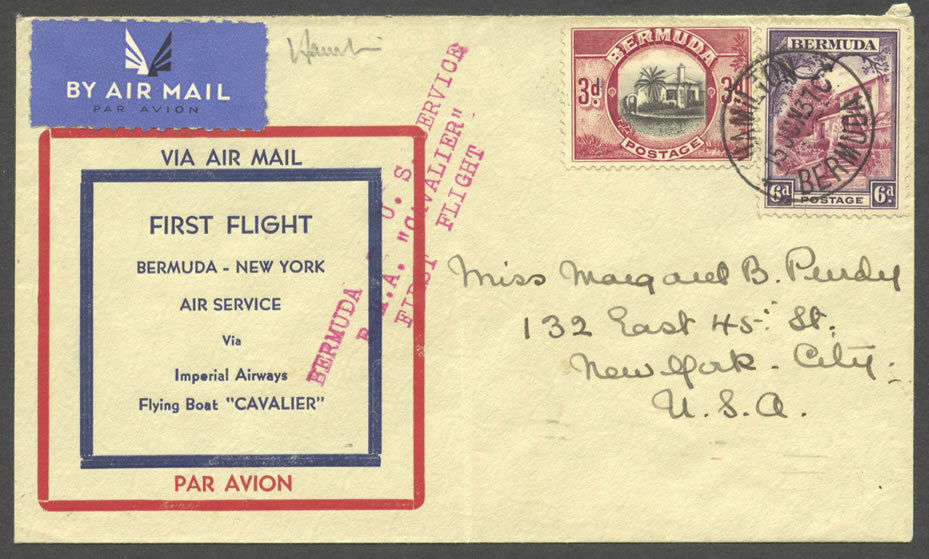 BY AIR MAIL
PAR AVION
VIA AIR MAIL
FIRST FLIGHT
BERMUDA - NEW YORK
AIR SERVICE
Via
Imperial Airways
Flying Boat "CAVALIER"
PAR AVION
BERMUDA U. S. SERVICE
"CAVALIER"
FIRST FLIGHT
BERMUDA
3d
3d
POSTAGE
BERMUDA
6d
6d
POSTAGE
HAMILTON
BERMUDA
Miss Margaret B. Purdy
132 East 45 St.
New York City.
U.S.A.